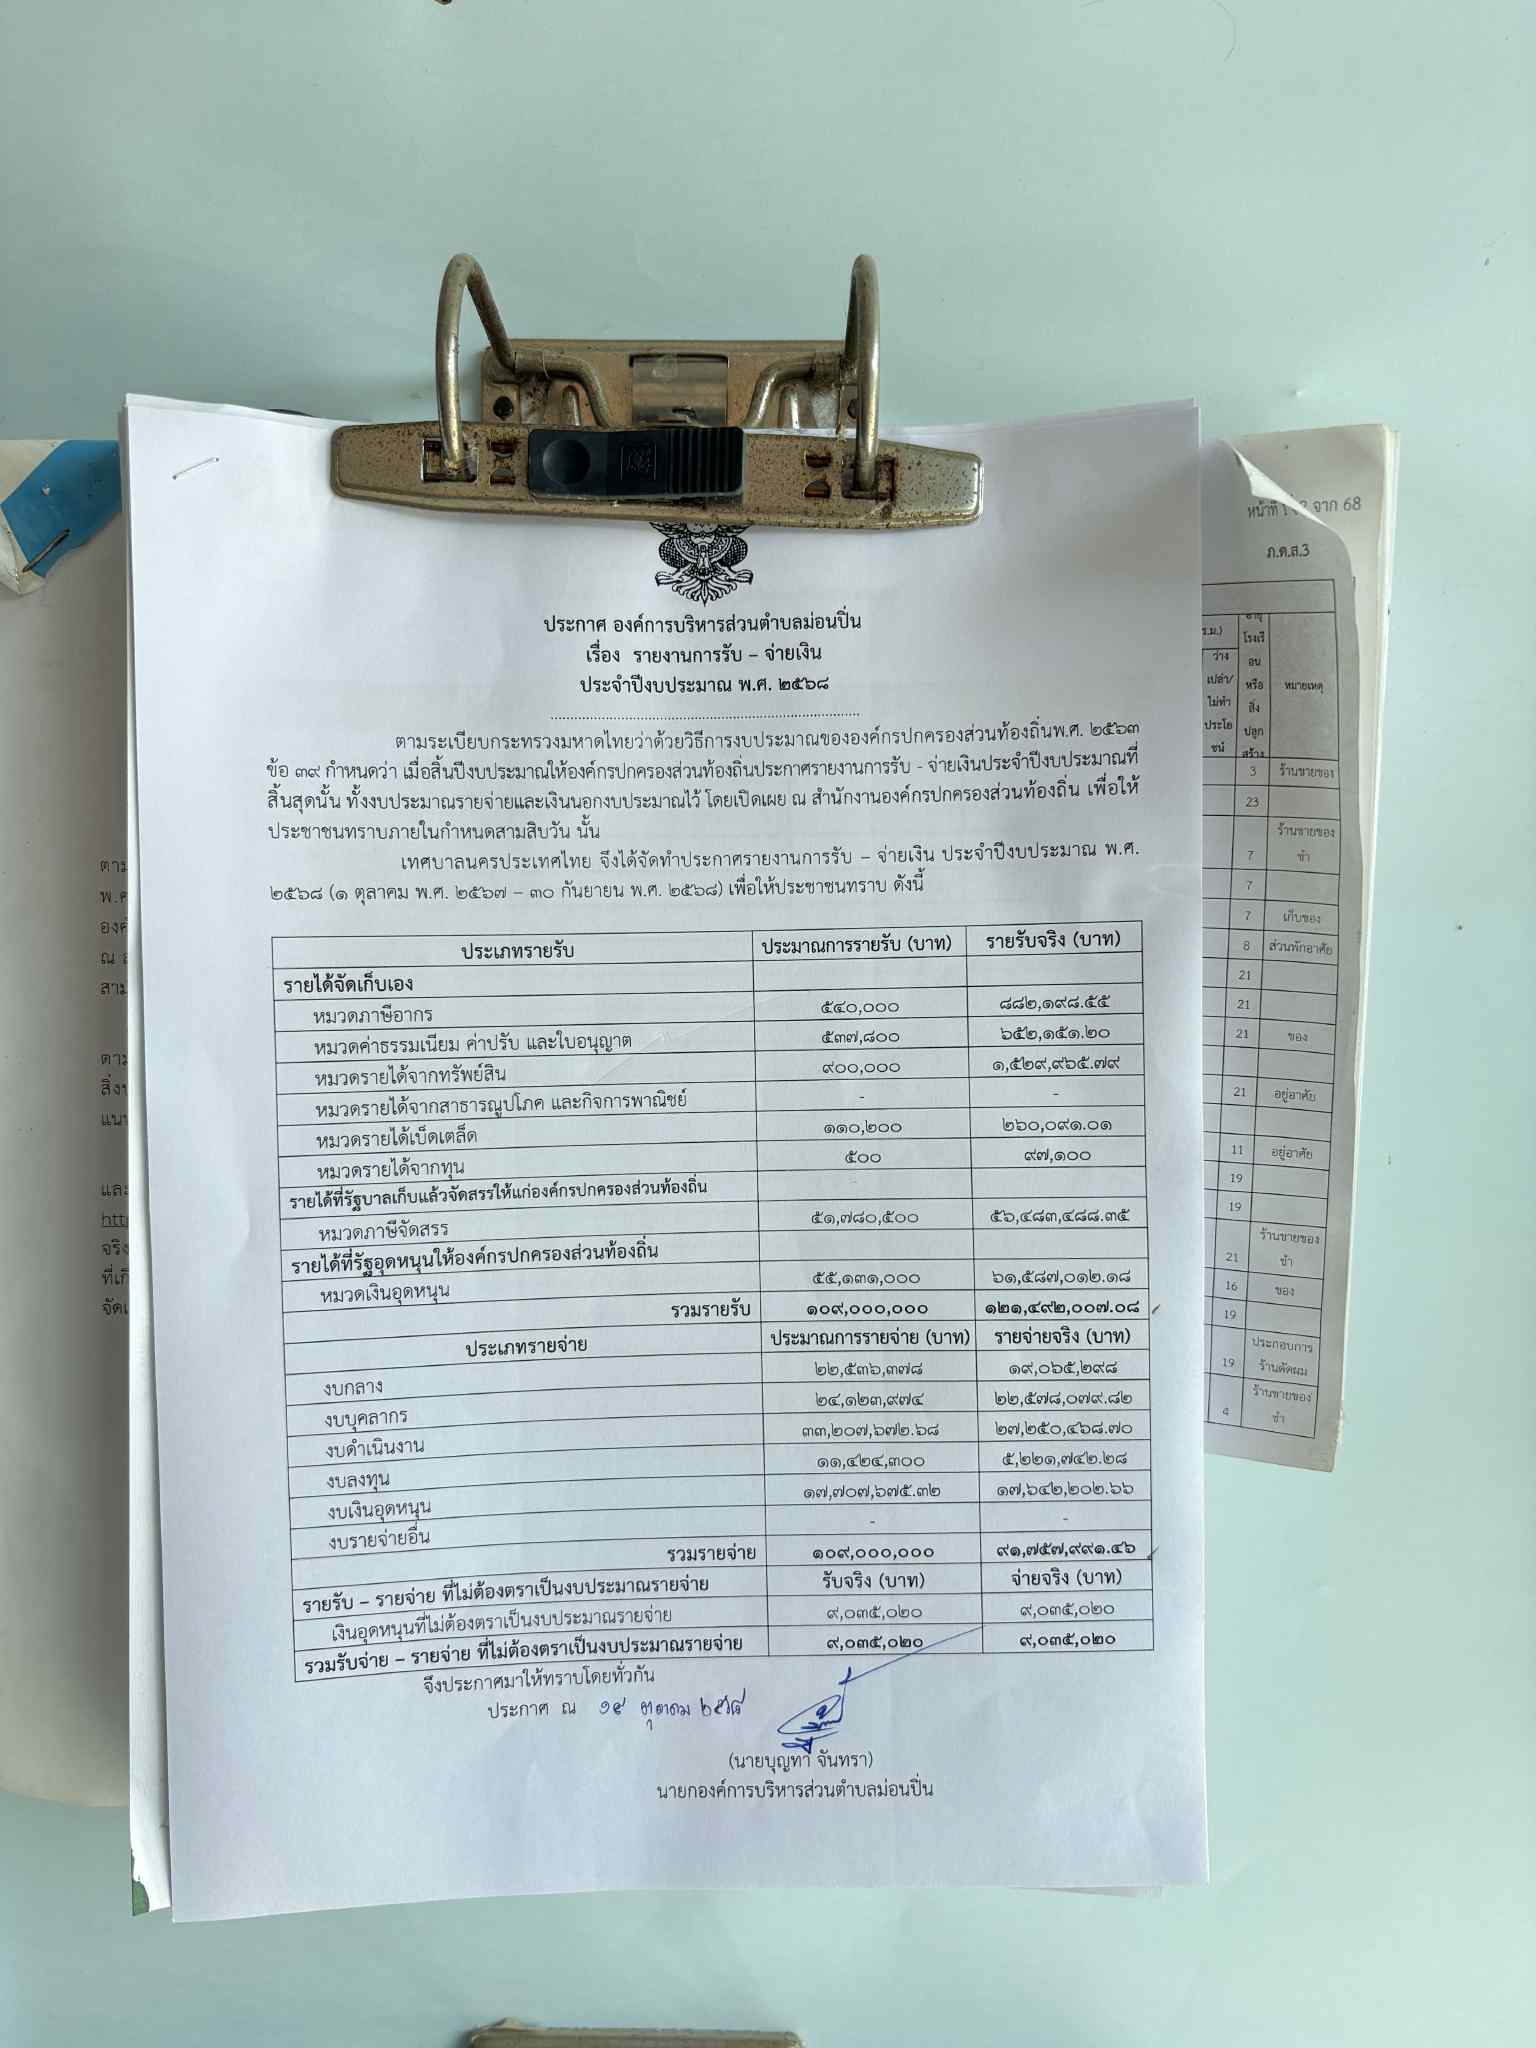 ประกาศ องค์การบริหารส่วนตำบลม่อนปิ่น
เรื่อง รายงานการรับ – จ่ายเงิน
ประจำปีงบประมาณ พ.ศ. ๒๕๖๘
ตามระเบียบกระทรวงมหาดไทยว่าด้วยวิธีการงบประมาณขององค์กรปกครองส่วนท้องถิ่นพ.ศ. ๒๕๖๓
ข้อ ๓๙ กำหนดว่า เมื่อสิ้นปีงบประมาณให้องค์กรปกครองส่วนท้องถิ่นประกาศรายงานการรับ - จ่ายเงินประจำปีงบประมาณที่
สิ้นสุดนั้น ทั้งงบประมาณรายจ่ายและเงินนอกงบประมาณไว้ โดยเปิดเผย ณ สำนักงานองค์กรปกครองส่วนท้องถิ่น เพื่อให้
ประชาชนทราบภายในกำหนดสามสิบวัน นั้น
เทศบาลนครประเทศไทย จึงได้จัดทำประกาศรายงานการรับ – จ่ายเงิน ประจำปีงบประมาณ พ.ศ.
๒๕๖๘ (๑ ตุลาคม พ.ศ. ๒๕๖๗ – ๓๐ กันยายน พ.ศ. ๒๕๖๘) เพื่อให้ประชาชนทราบ ดังนี้
ประเภทรายรับ ประมาณการรายรับ (บาท) รายรับจริง (บาท)
รายได้จัดเก็บเอง
หมวดภาษีอากร ๕๔๐,๐๐๐ ๘๘๒,๑๙๘.๕๕
หมวดค่าธรรมเนียม ค่าปรับ และใบอนุญาต ๕๓๗,๘๐๐ ๖๕๒,๑๕๑.๒๐
หมวดรายได้จากทรัพย์สิน ๙๐๐,๐๐๐ ๑,๕๒๙,๙๖๕.๗๙
หมวดรายได้จากสาธารณูปโภค และกิจการพาณิชย์ - -
หมวดรายได้เบ็ดเตล็ด ๑๑๐,๒๐๐ ๒๖๐,๐๙๑.๐๑
หมวดรายได้จากทุน ๕๐๐ ๙๗,๑๐๐
รายได้ที่รัฐบาลเก็บแล้วจัดสรรให้แก่องค์กรปกครองส่วนท้องถิ่น
หมวดภาษีจัดสรร ๕๑,๗๘๐,๕๐๐ ๕๖,๔๘๓,๔๘๘.๓๕
รายได้ที่รัฐอุดหนุนให้องค์กรปกครองส่วนท้องถิ่น
หมวดเงินอุดหนุน ๕๕,๑๓๑,๐๐๐ ๖๑,๕๘๗,๐๑๒.๑๘
รวมรายรับ ๑๐๙,๐๐๐,๐๐๐ ๑๒๑,๔๙๒,๐๐๗.๐๘
ประเภทรายจ่าย ประมาณการรายจ่าย (บาท) รายจ่ายจริง (บาท)
งบกลาง ๒๒,๕๓๖,๓๗๘ ๑๙,๐๖๕,๒๙๘
งบบุคลากร ๒๔,๑๒๓,๙๗๔ ๒๒,๕๗๘,๐๗๙.๘๒
งบดำเนินงาน ๓๓,๒๐๗,๖๗๒.๖๘ ๒๗,๒๕๐,๔๖๘.๗๐
งบลงทุน ๑๑,๔๒๔,๓๐๐ ๕,๒๒๑,๗๔๒.๒๘
งบเงินอุดหนุน ๑๗,๗๐๗,๖๗๕.๓๒ ๑๗,๖๔๒,๒๐๒.๖๖
งบรายจ่ายอื่น - -
รวมรายจ่าย ๑๐๙,๐๐๐,๐๐๐ ๙๑,๗๕๗,๙๙๑.๔๖
รายรับ – รายจ่าย ที่ไม่ต้องตราเป็นงบประมาณรายจ่าย รับจริง (บาท) จ่ายจริง (บาท)
เงินอุดหนุนที่ไม่ต้องตราเป็นงบประมาณรายจ่าย ๙,๐๓๕,๐๒๐ ๙,๐๓๕,๐๒๐
รวมรับจ่าย – รายจ่าย ที่ไม่ต้องตราเป็นงบประมาณรายจ่าย ๙,๐๓๕,๐๒๐ ๙,๐๓๕,๐๒๐
จึงประกาศมาให้ทราบโดยทั่วกัน
ประกาศ ณ ๑๙ ตุลาคม ๒๕๖๘
(นายบุญทา จันทรา)
นายกองค์การบริหารส่วนตำบลม่อนปิ่น
จาก 68
ภ.ด.ส.3
ว่าง
เปล่า/
ไม่ทำ
ประโย
ชน์
โรงเรื
อน
หรือ
สิ่ง
ปลูก
สร้าง
หมายเหตุ
3 ร้านขายของ
23
7 ร้านขายของ
ชำ
7
7 เก็บของ
8 ส่วนพักอาศัย
21
21
21 ของ
21 อยู่อาศัย
11 อยู่อาศัย
19
19
21 ร้านขายของ
ชำ
16 ของ
19
19 ประกอบการ
ร้านตัดผม
4 ร้านขายของ
ชำ